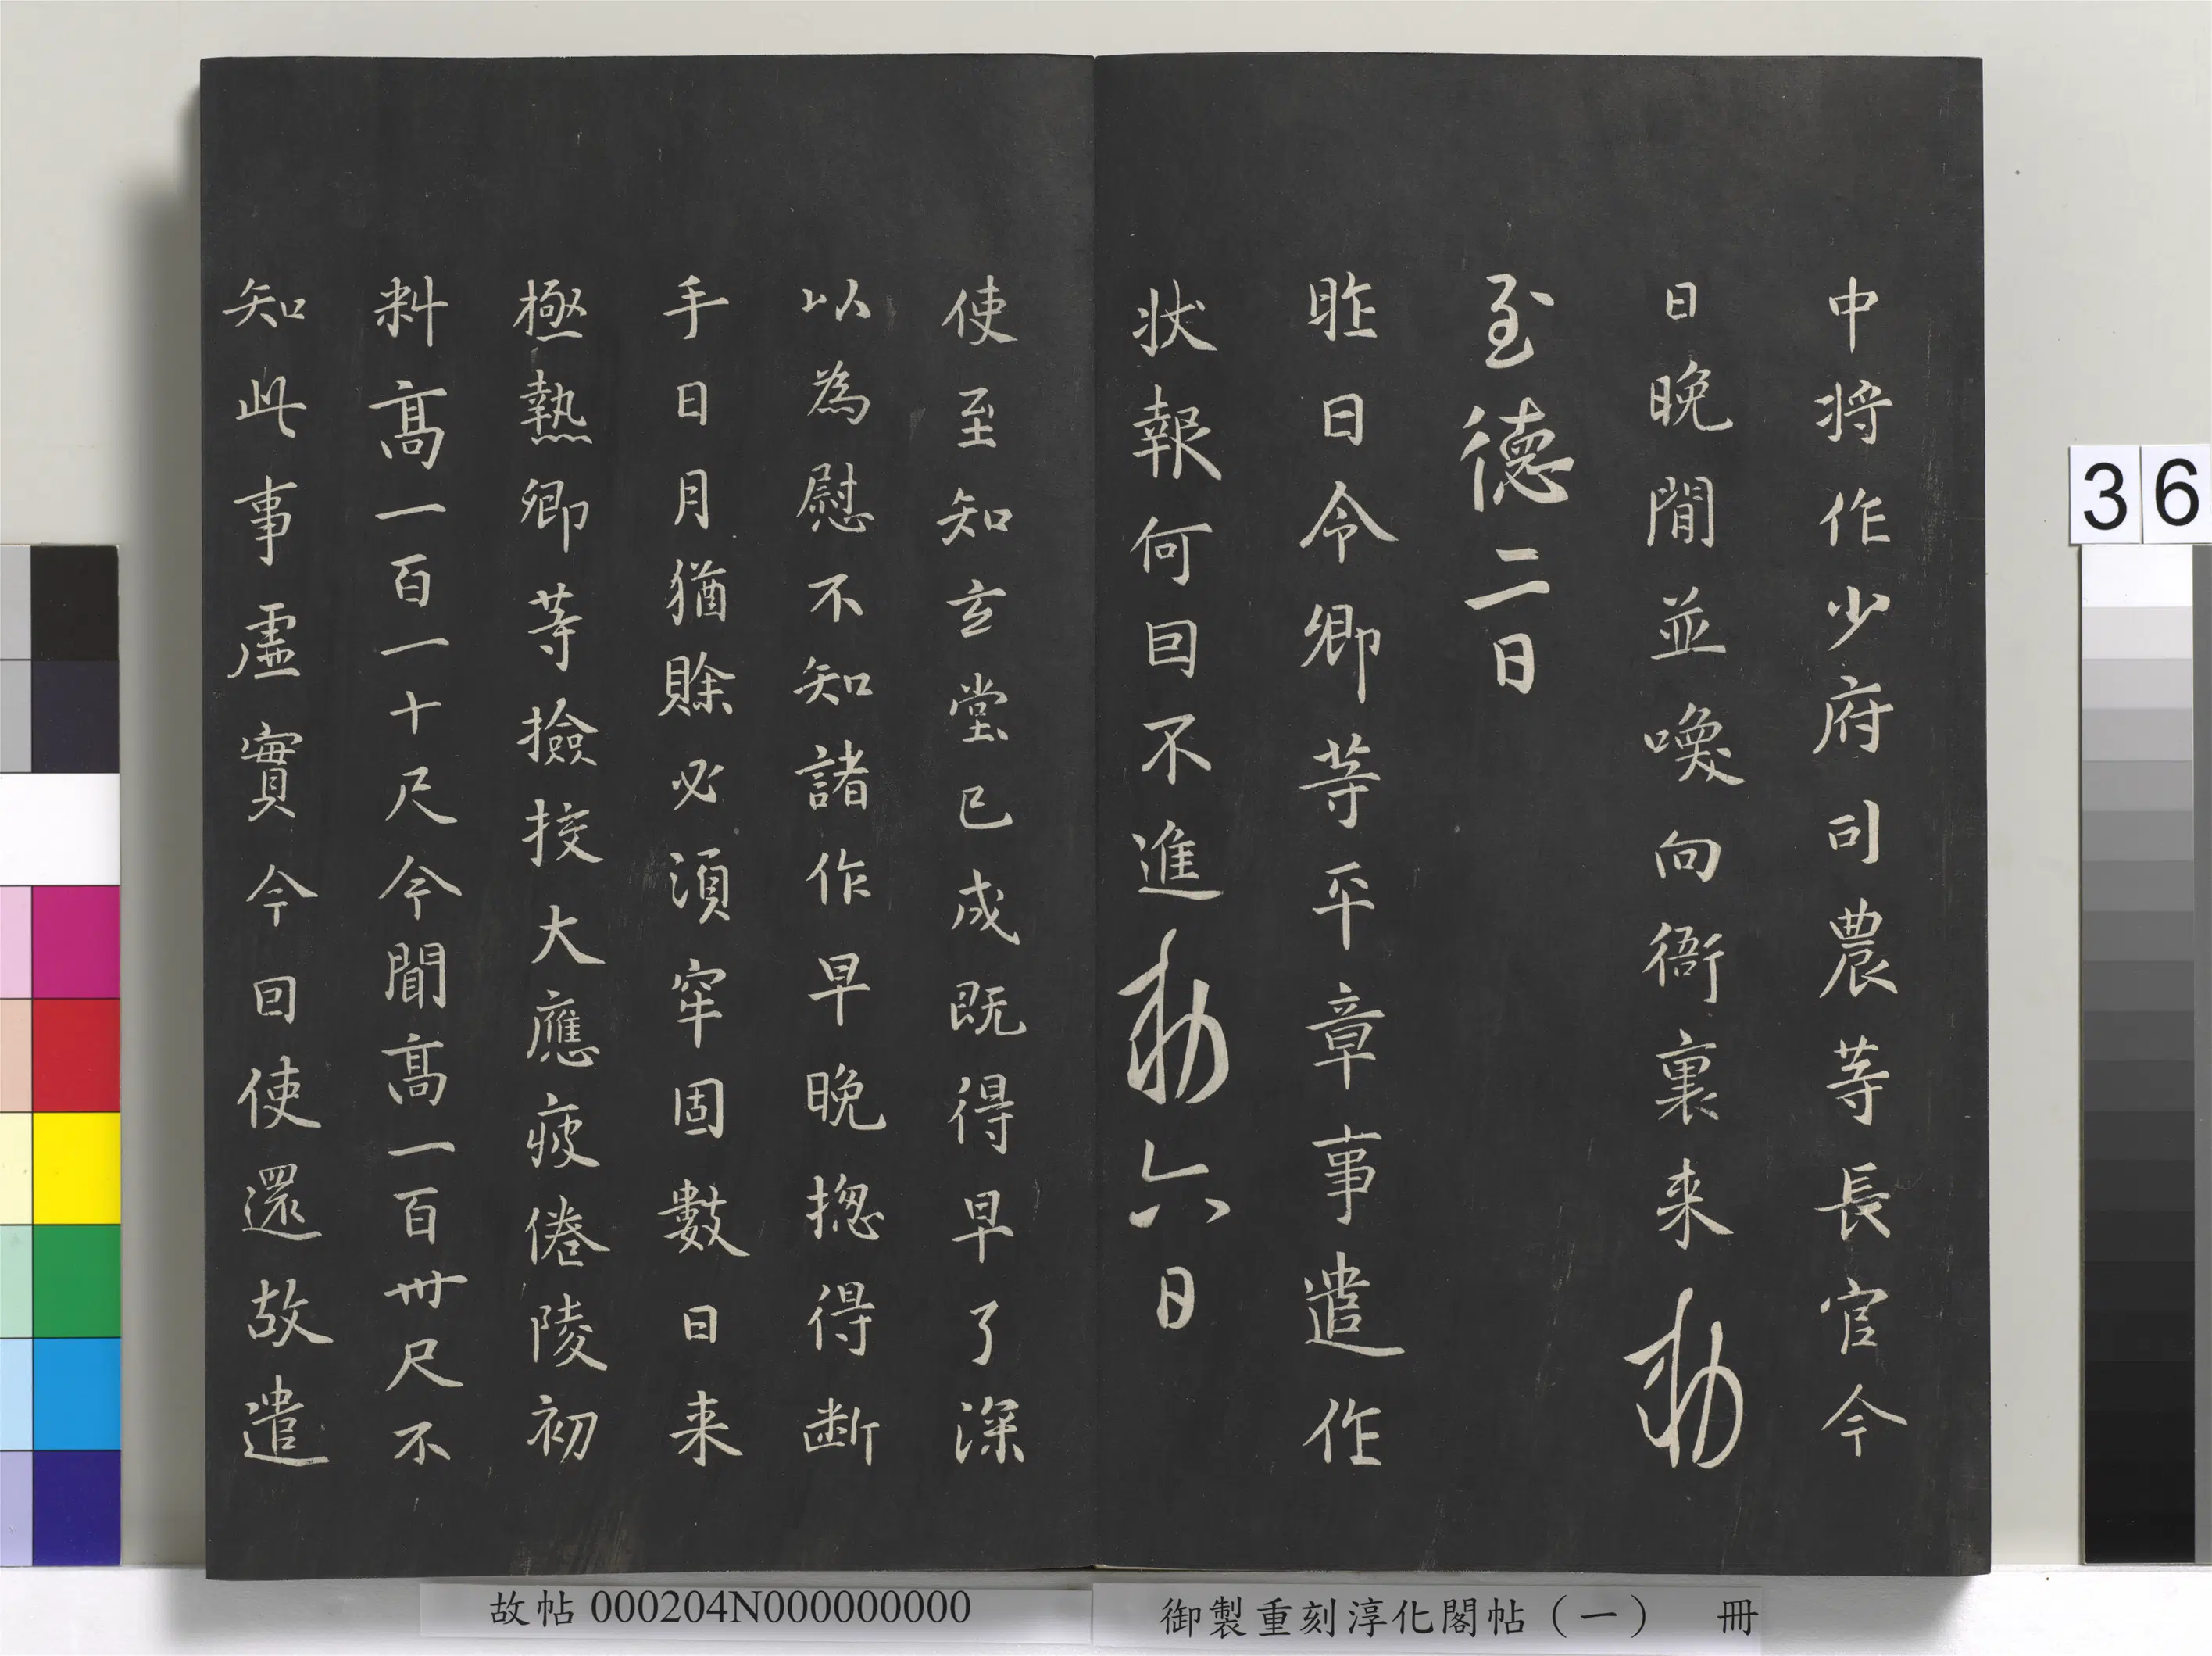 中将作少府司農等長官今
日晚間並喚向衙裏来勅
至德二日
昨日令卿等平章事遣作
状報何因不進勅六日
使至知玄堂已成既得早了深
以為慰不知諸作早晚揔得断
手日月猶賒必須牢固數日来
極熱卿等撿挍大應疲倦陵初
料高一百一十尺今聞高一百卅尺不
知此事虛實今因使還故遣
36
故帖 000204N000000000
御製重刻淳化閣帖（一） 冊